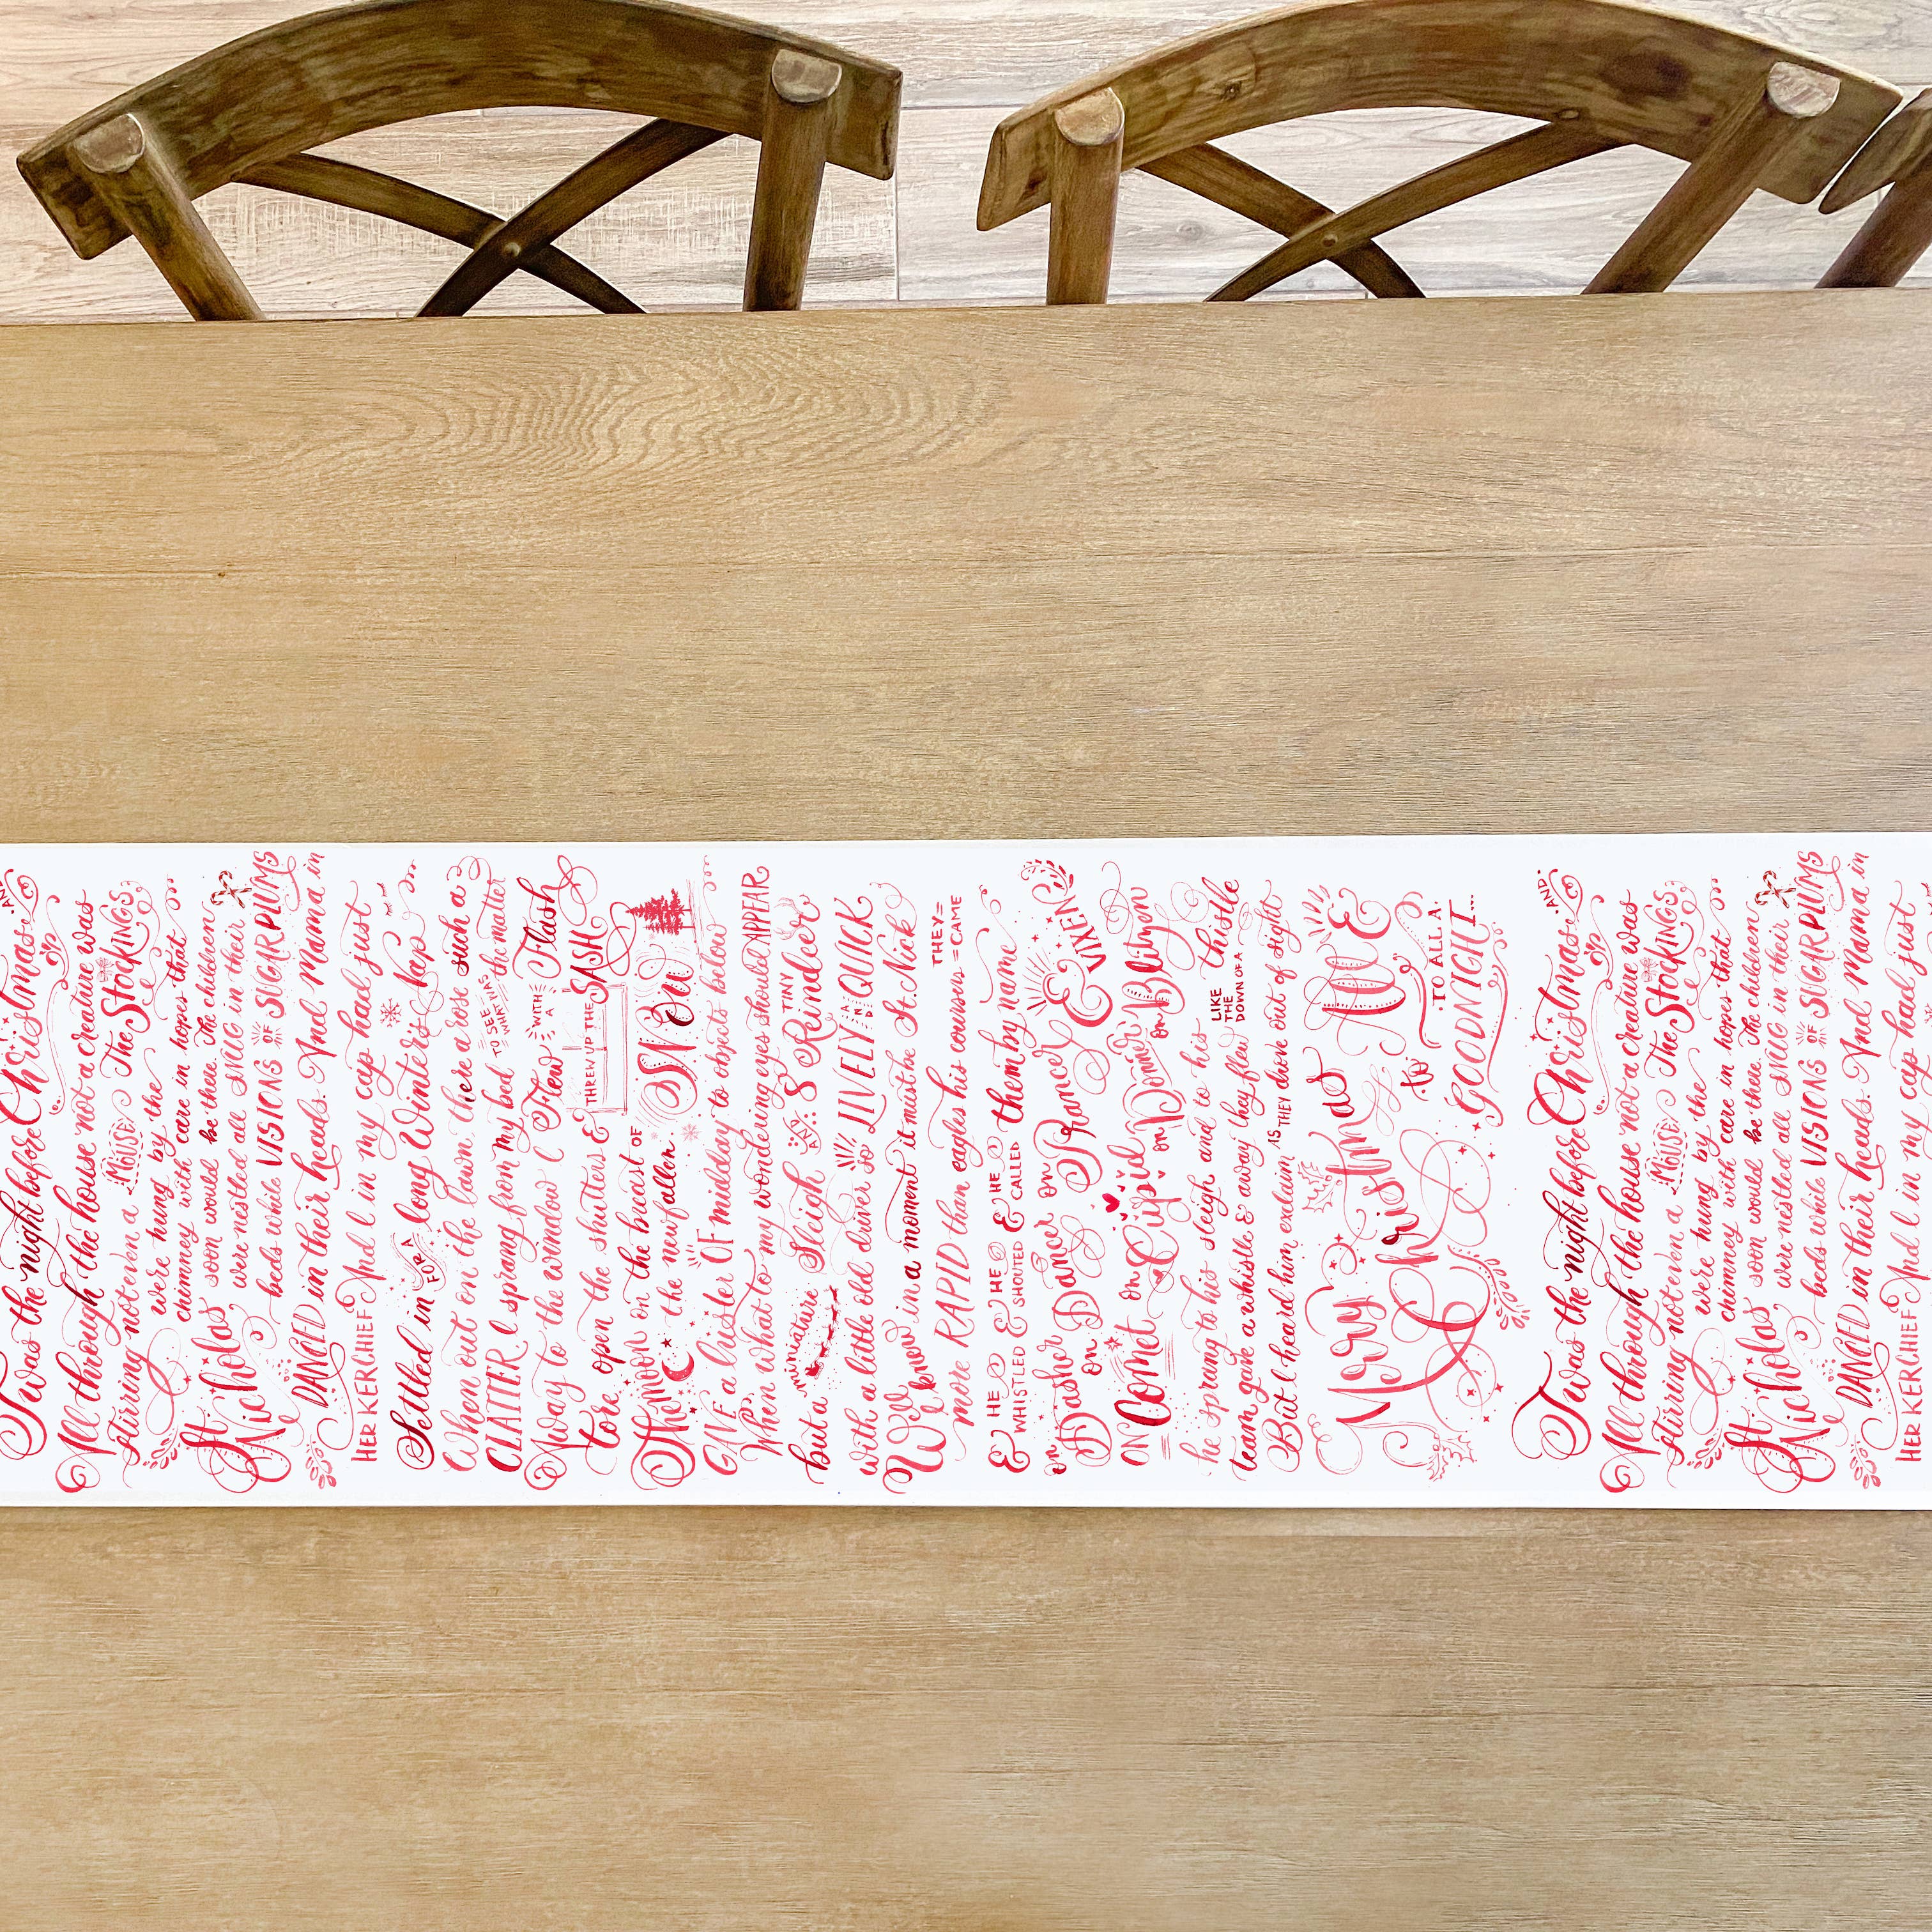 Twas the night before Christmas AND
All through the house not a creature was
stirring not even a MOUSE The Stockings
were hung by the
chimney with care in hopes that
St. Nicholas soon would be there. The children
were nestled all SNUG in their
beds while VISIONS OF SUGAR PLUMS
DANCED in their heads. And Mama in
HER KERCHIEF And I in my cap had just
Settled in FOR A long Winter's Nap
When out on the lawn there a rose such a
CLATTER I sprang from my bed TO SEE WHAT WAS the matter
Away to the window I Flew WITH A Flash
tore open the shutters & THREW UP THE SASH
The moon on the breast OF
the new fallen Snow
GAVE a luster OF midday to objects below
When what to my wondering eyes should APPEAR
but a miniature Sleigh AND 8 TINY Reindeer
with a little old driver so LIVELY AND QUICK
We knew in a moment it must be St. Nick
more RAPID than eagles his coursers THEY CAME
& HE WHISTLED & HE SHOUTED & HE CALLED them by name
on Dasher on Dancer on Prancer & VIXEN
ON Comet on Cupid on Donner on Blitzen
he sprang to his sleigh and to his
team gave a whistle & away they flew LIKE THE DOWN OF A thistle
But I heard him exclaim AS THEY drove out of sight
Merry Christmas to All &
TO ALL A
GOODNIGHT...
Twas the night before Christmas AND
All through the house not a creature was
stirring not even a MOUSE The Stockings
were hung by the
chimney with care in hopes that
St. Nicholas soon would be there. The children
were nestled all SNUG in their
beds while VISIONS OF SUGAR PLUMS
DANCED in their heads. And Mama in
HER KERCHIEF And I in my cap had just